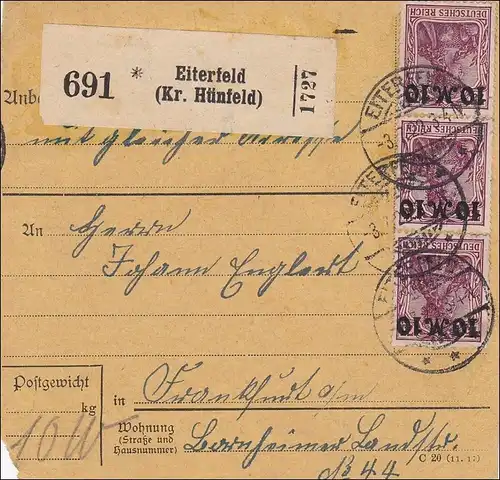 691 * Eiterfeld
(Kr. Hünfeld)
1727
DEUTSCHES REICH
10 M 10
Anb
mit gleicher
EITERFELD
DEUTSCHES REICH
10 M 10
An Herrn
Johann Englert
DEUTSCHES REICH
10 M 10
Postgewicht
kg
10
in Frankfurt a/m
Wohnung
(Straße und
Hausnummer)
Bornheimer Landstr.
No 44
C 20 (11. 17)